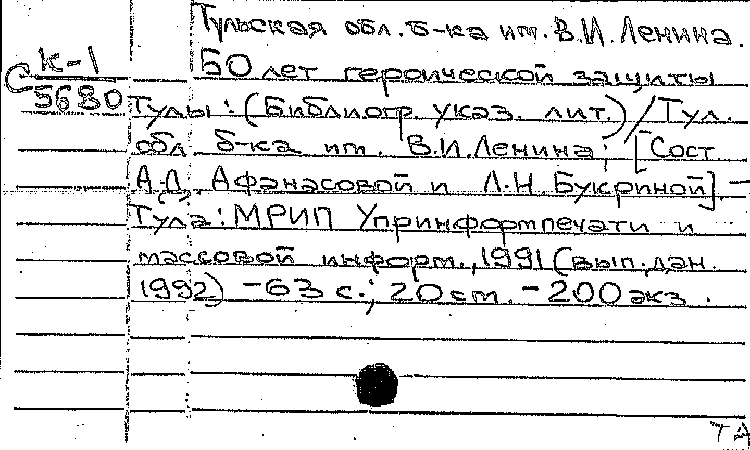 Тульская обл. б-ка им. В.И. Ленина.
К-1 50 лет героической защиты
С 5680 Тулы: (Библиогр. указ. лит.) / Тул.
обл. б-ка им. В.И. Ленина; [Сост.
А.Д. Афанасовой и Л.Н. Букриной]. —
Тула: МРИП Упринформпечати и
массовой информ., 1991 (вып. дан.
1992) - 63 с.; 20 см. - 200 экз.
ТА